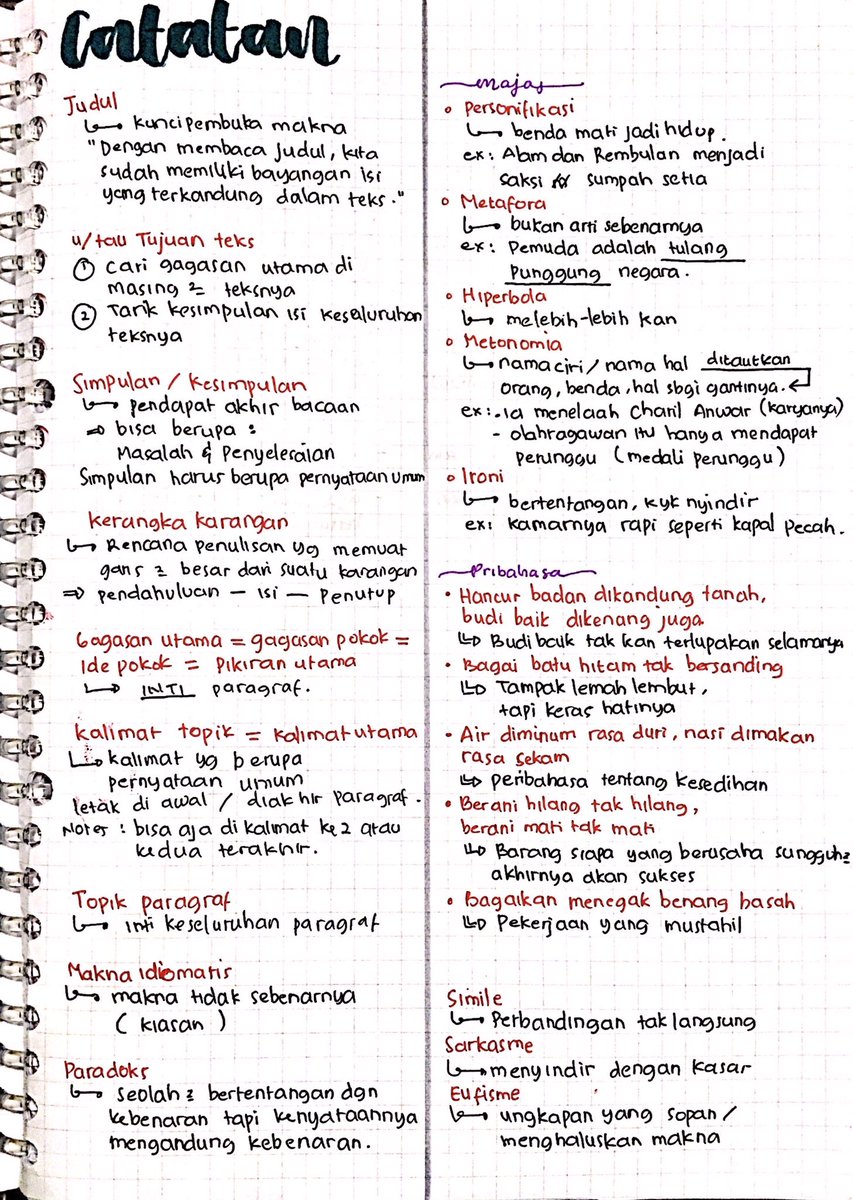 Catatan
Judul
↳ kunci pembuka makna
"Dengan membaca Judul, kita
sudah memiluki bayangan isi
yang terkandung dalam teks."
u/tau Tujuan teks
① cari gagasan utama di
masing 2 teksnya
② Tarik kesimpulan isi kesaluruhan
teksnya
Simpulan / kesimpulan
↳ pendapat akhir bacaan
⇒ bisa berupa :
Masalah & Penyelesaian
Simpulan harus berupa pernyataan umum
kerangka karangan
↳ Rencana penulisan yg memuat
garis 2 besar dari suatu karangan
⇒ pendahuluan — isi — penutup
Gagasan utama = gagasan pokok =
Ide pokok = Pikiran utama
↳ INTI paragraf.
kalimat topik = kalimat utama
↳ kalimat yg berupa
pernyataan umum
letak di awal / diakhir paragraf.
Notes : bisa aja di kalimat ke 2 atau
kedua terakhir.
Topik paragraf
↳ inti keseluruhan paragraf
Makna Idiomatis
↳ makna tidak sebenarnya
( kiasan )
Paradoks
↳ seolah 2 bertentangan dgn
kebenaran tapi kenyataannya
mengandung kebenaran.
majas
• Personifikasi
↳ benda mati jadi hidup.
ex : Alam dan Rembulan menjadi
saksi sumpah setia
• Metafora
↳ bukan arti sebenarnya
ex : Pemuda adalah tulang
punggung negara.
• Hiperbola
↳ melebih-lebih kan
• Metonomia
↳ nama ciri / nama hal ditautkan
orang, benda, hal sbgi gantinya. ↵
ex : - ia menelaah Charil Anwar (karyanya)
- olahragawan itu hanya mendapat
perunggu (medali perunggu)
• Ironi
↳ bertentangan, kyk nyindir
ex : kamarnya rapi seperti kapal pecah.
Pribahasa
• Hancur badan dikandung tanah,
budi baik dikenang juga
↳ Budi baik tak kan terlupakan selamanya
• Bagai batu hitam tak bersanding
↳ Tampak lemah lembut,
tapi keras hatinya
• Air diminum rasa duri, nasi dimakan
rasa sekam
↳ peribahasa tentang kesedihan
• Berani hilang tak hilang,
berani mati tak mati
↳ Barang siapa yang berusaha sungguh2
akhirnya akan sukses
• Bagaikan menegak benang basah
↳ Pekerjaan yang mustahil
Simile
↳ Perbandingan tak langsung
Sarkasme
↳ menyindir dengan kasar
Eufisme
↳ ungkapan yang sopan /
menghaluskan makna